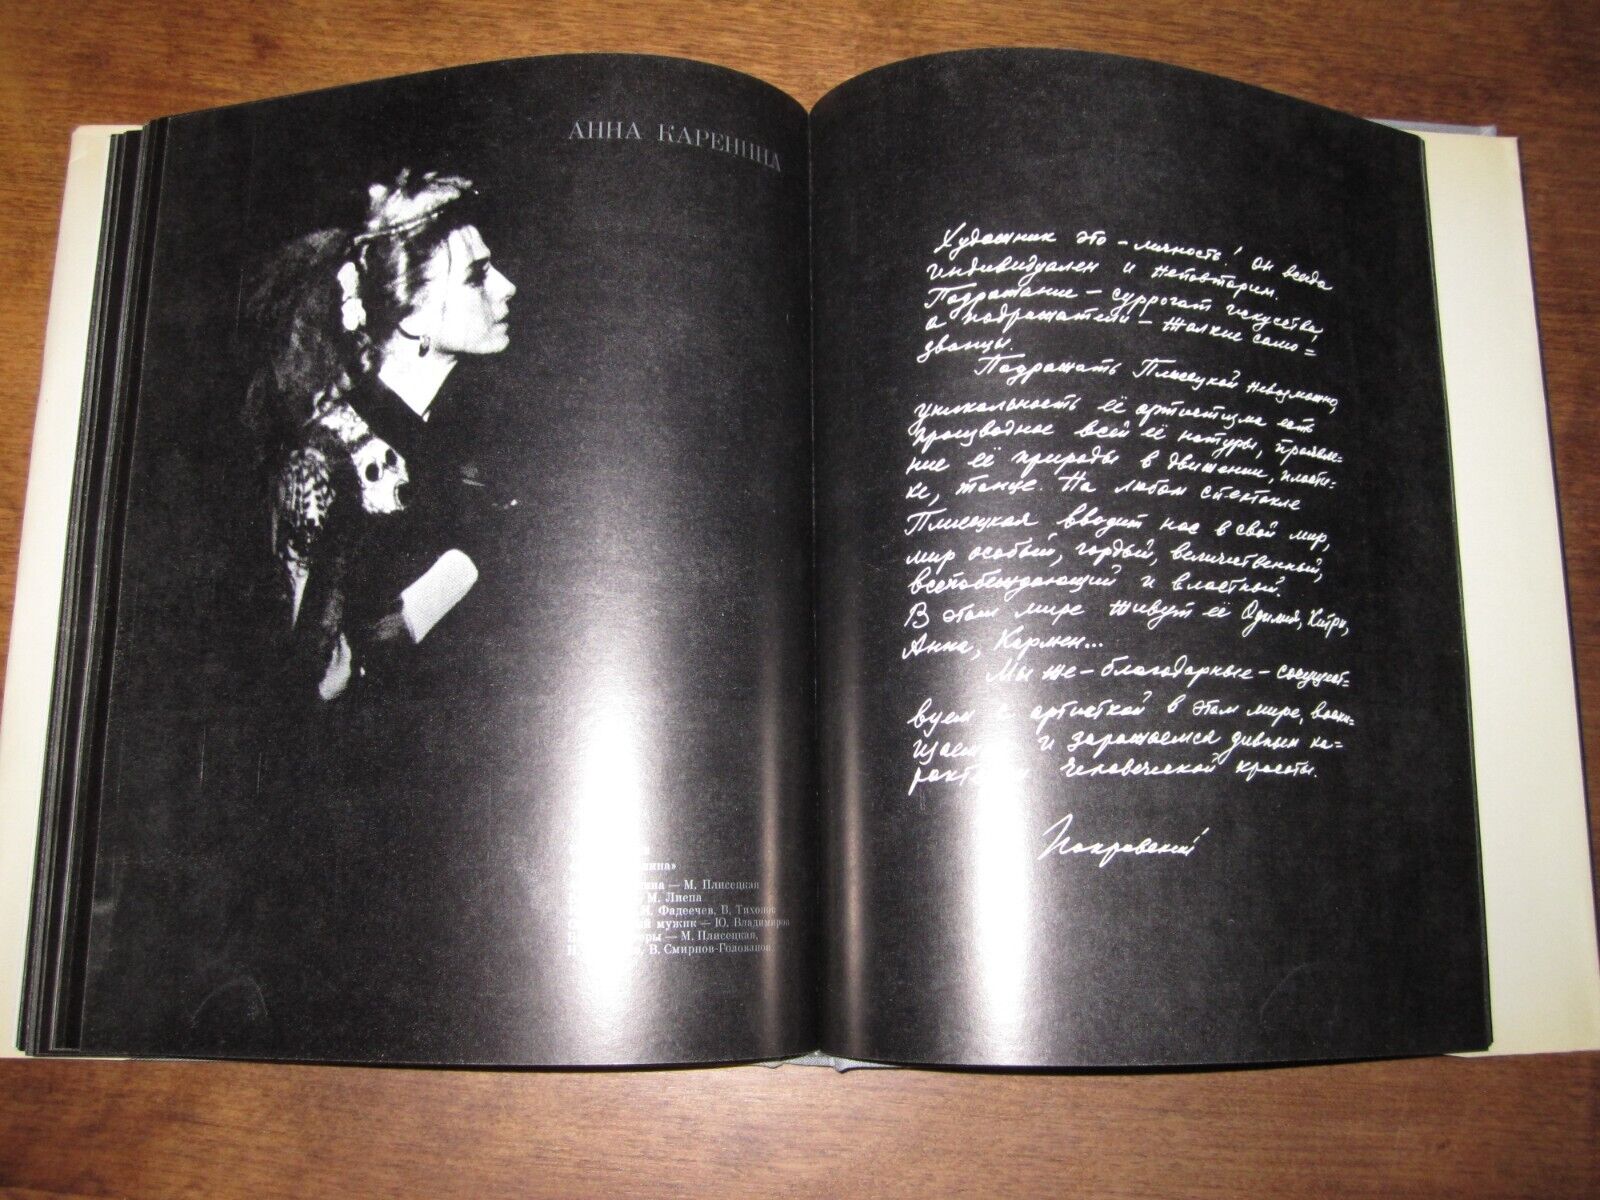 АННА КАРЕНИНА
нина»
на — М. Плисецкая
М. Лиепа
Фадеечев, В. Тихонов
й мужик — Ю. Владимиров
ры — М. Плисецкая,
В. Смирнов-Голованов
Художник это – личность! Он всегда
индивидуален и неповторим.
Подражание – суррогат искусства,
а подражатели – жалкие само=
званцы.
Подражать Плисецкой невозможно,
уникальность её артистизма есть
производное всей её натуры, проявле-
ние её природы в движении, пласти-
ке, танце. На любом спектакле
Плисецкая вводит нас в свой мир,
мир особый, гордый, величественный,
всепобеждающий и властный.
В этом мире живут её Одилия, Китри,
Анна, Кармен...
Мы же – благодарные – сосущест=
вуем с артисткой в этом мире, восхи=
щаем и заражаемся дивным ха=
рактером человеческой красоты.
Покровский